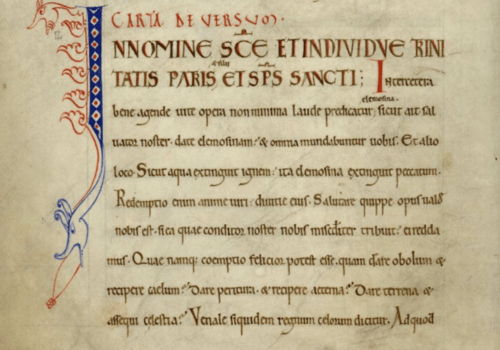 CARTA DE VERSUOS.
NNOMINE SCE ET INDIVIDVE TRINI
& filii
TATIS PARIS ET SPS SANCTI; Inter cetera
elemosina.
bene agende vite opera non minima laude predicatur; sicut ait sal
uator noster. date elemosinam. & omnia mundabuntur uobis. Et alio
loco. Sicut aqua extinguit ignem. ita elemosina extinguit peccatum.
Redemptio enim anime uiri. diuitie eius. Salutare quippe opus
nobis est. si ea quae conditor noster nobis tribuit. ei redda
mus. Quae namq; coemptio felicior potest esse. quam dare obolum &
recipere caelum? Dare peritura. & recipere aeterna? Dare terrena &
assequi celestia? Venale siquidem regnum celorum dicitur. Ad quod